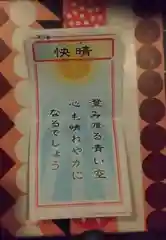 快晴
澄み渡る青い空
心も晴れやかに
なるでしょう